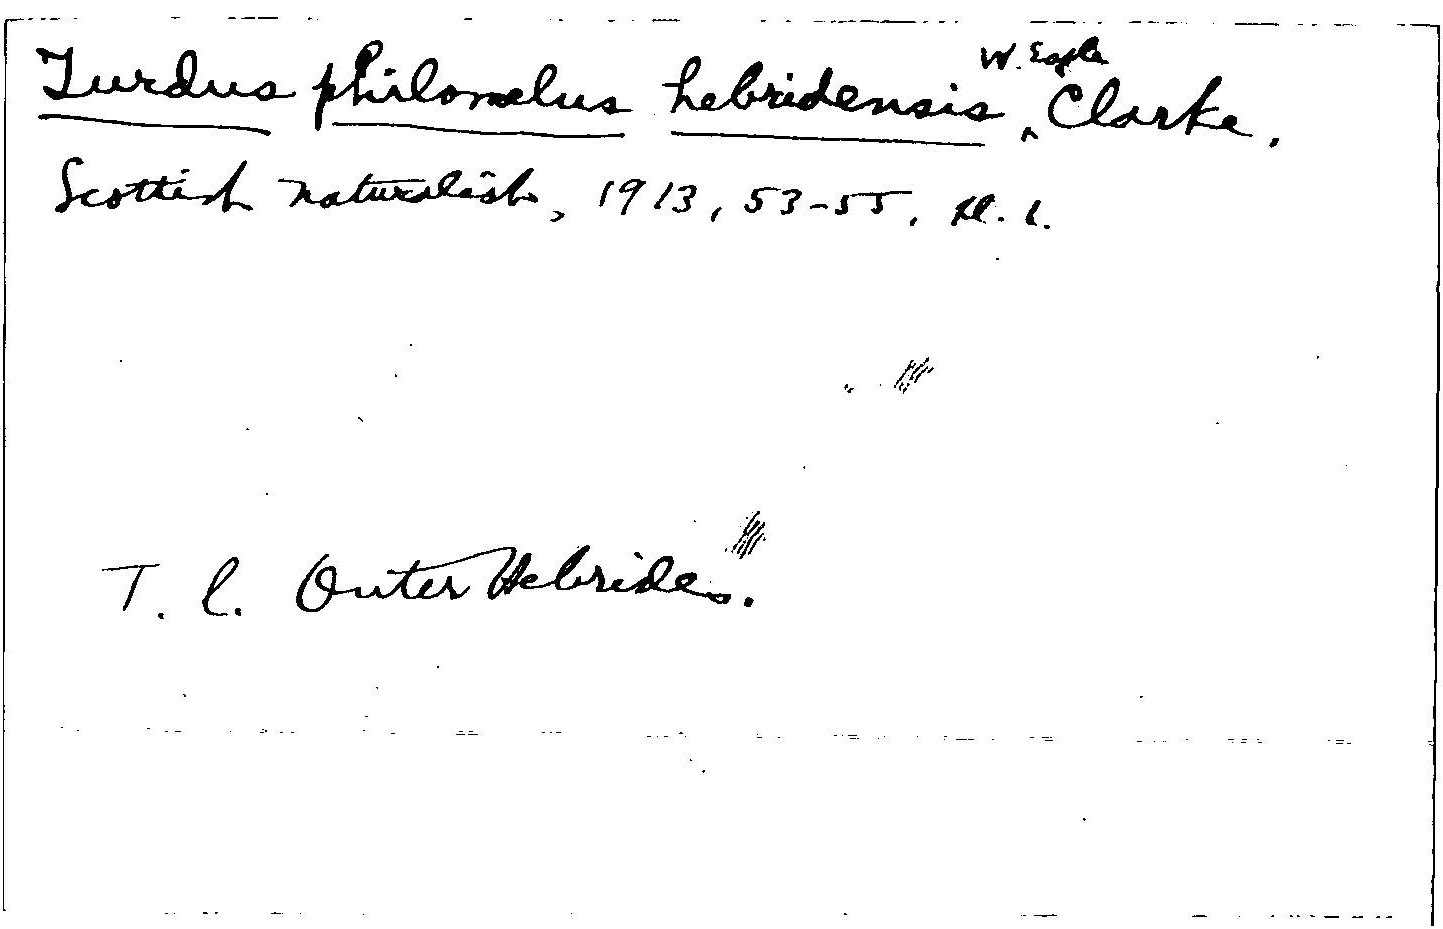 Turdus philomelus hebridensis ^ W. Eagle Clarke.
Scottish naturalist, 1913, 53-55. pl. 1.
T. l. Outer Hebrides.